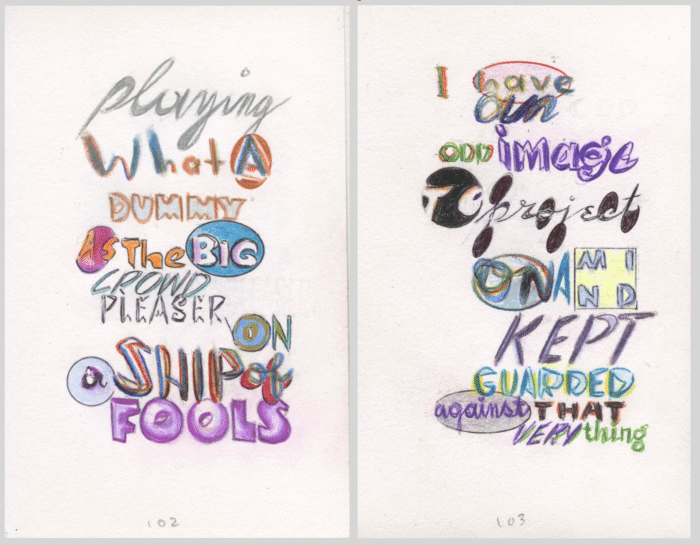 playing
What A
DUMMY
As The BIG
CROWD
PLEASER
ON
a SHIP of
FOOLS
102
I have
an
ODD image
TO project
ON A MI
ND
KEPT
GUARDED
against THAT
VERY thing
103